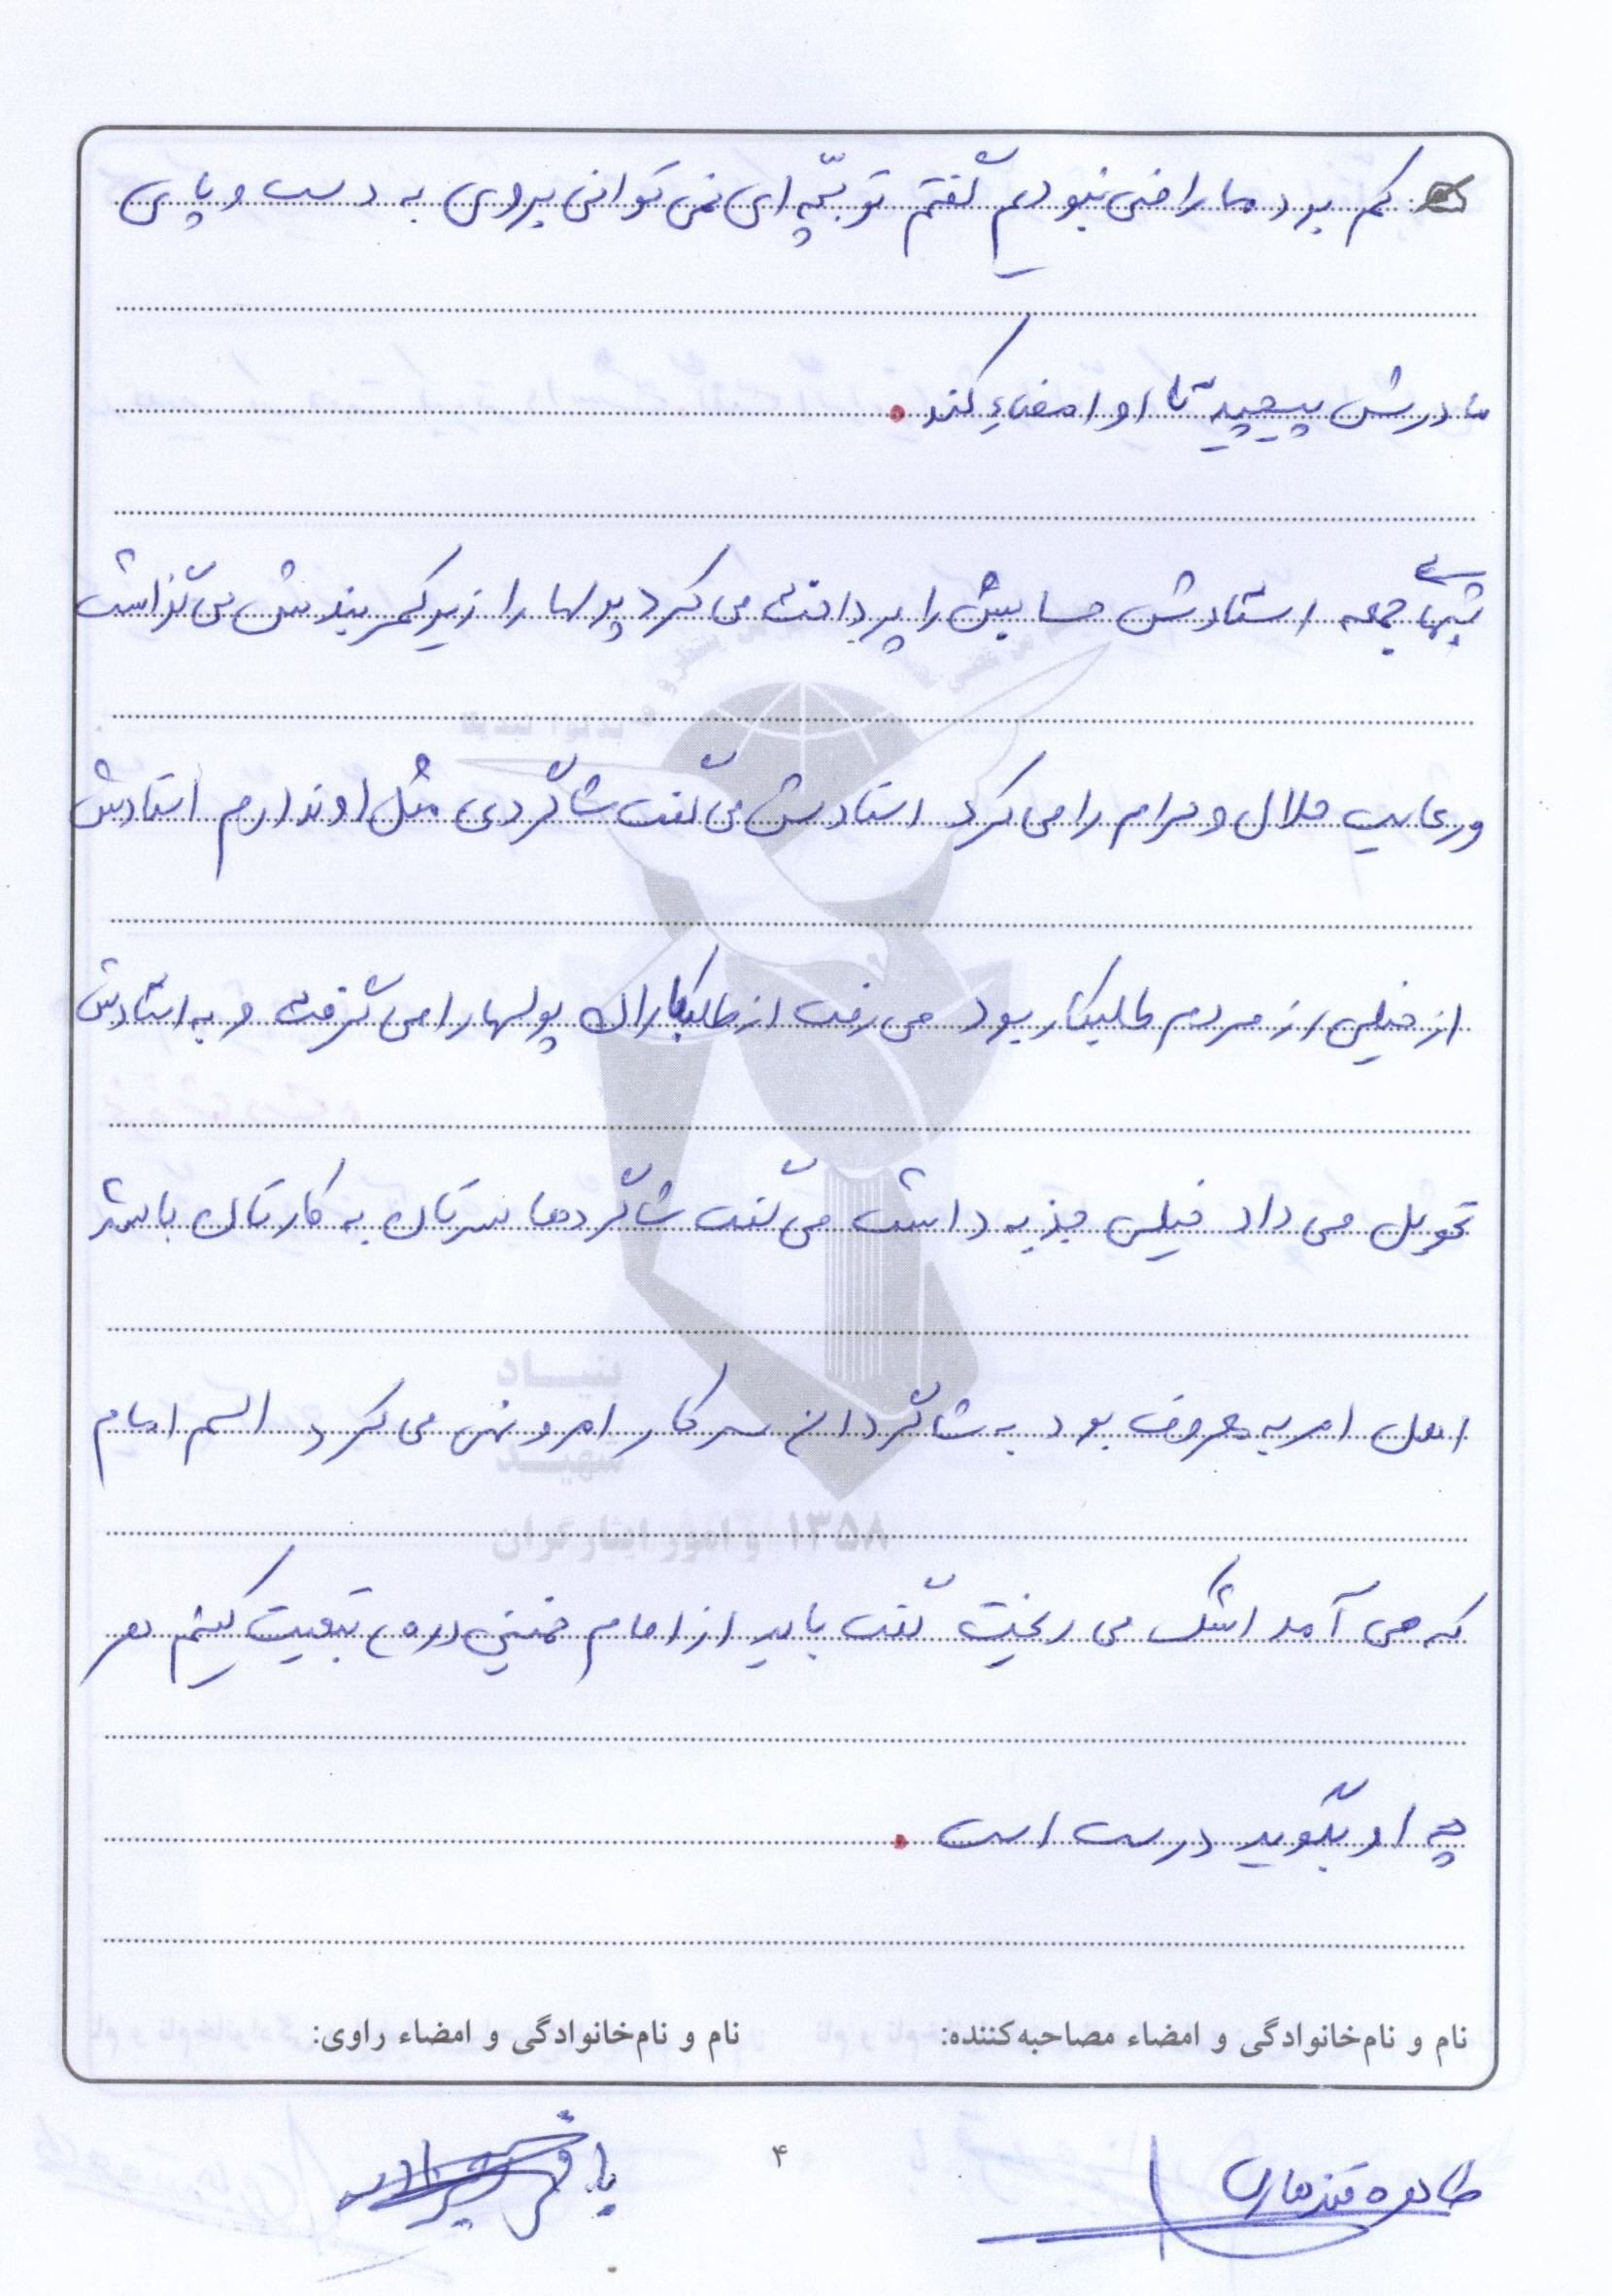 کم بود ما راضی نبودیم گفتم تو بچّه ای نمی توانی بروی به دست و پای
مادرش پیچید تا او امضاء کند.
شبهای جمعه استادش حسابش را پرداخت می کرد پولها را زیر کمربندش می گذاشت
ورعایت حلال و حرام را می کرد استادش می گفت شاگردی مثل او ندارم استادش
از خیلی از مردم طلبکار بود می رفت از طلبکاران پولها را می گرفت و به استادش
تحویل می داد خیلی جذبه داشت می گفت شاگردها سرتان به کارتان باشد
اهل امر به معروف بود به شاگردان سر کار امر و نهی می کرد اسم امام
که می آمد اشک می ریخت گفت باید از امام خمینی (ره) تبعیت کنیم هر
چه او بگوید درست است.
بنیاد
شهید
و امور ایثارگران ۱۳۵۸
نام و نام‌خانوادگی و امضاء مصاحبه‌کننده: نام و نام‌خانوادگی و امضاء راوی:
طاهره قندهاری
۴
باقر